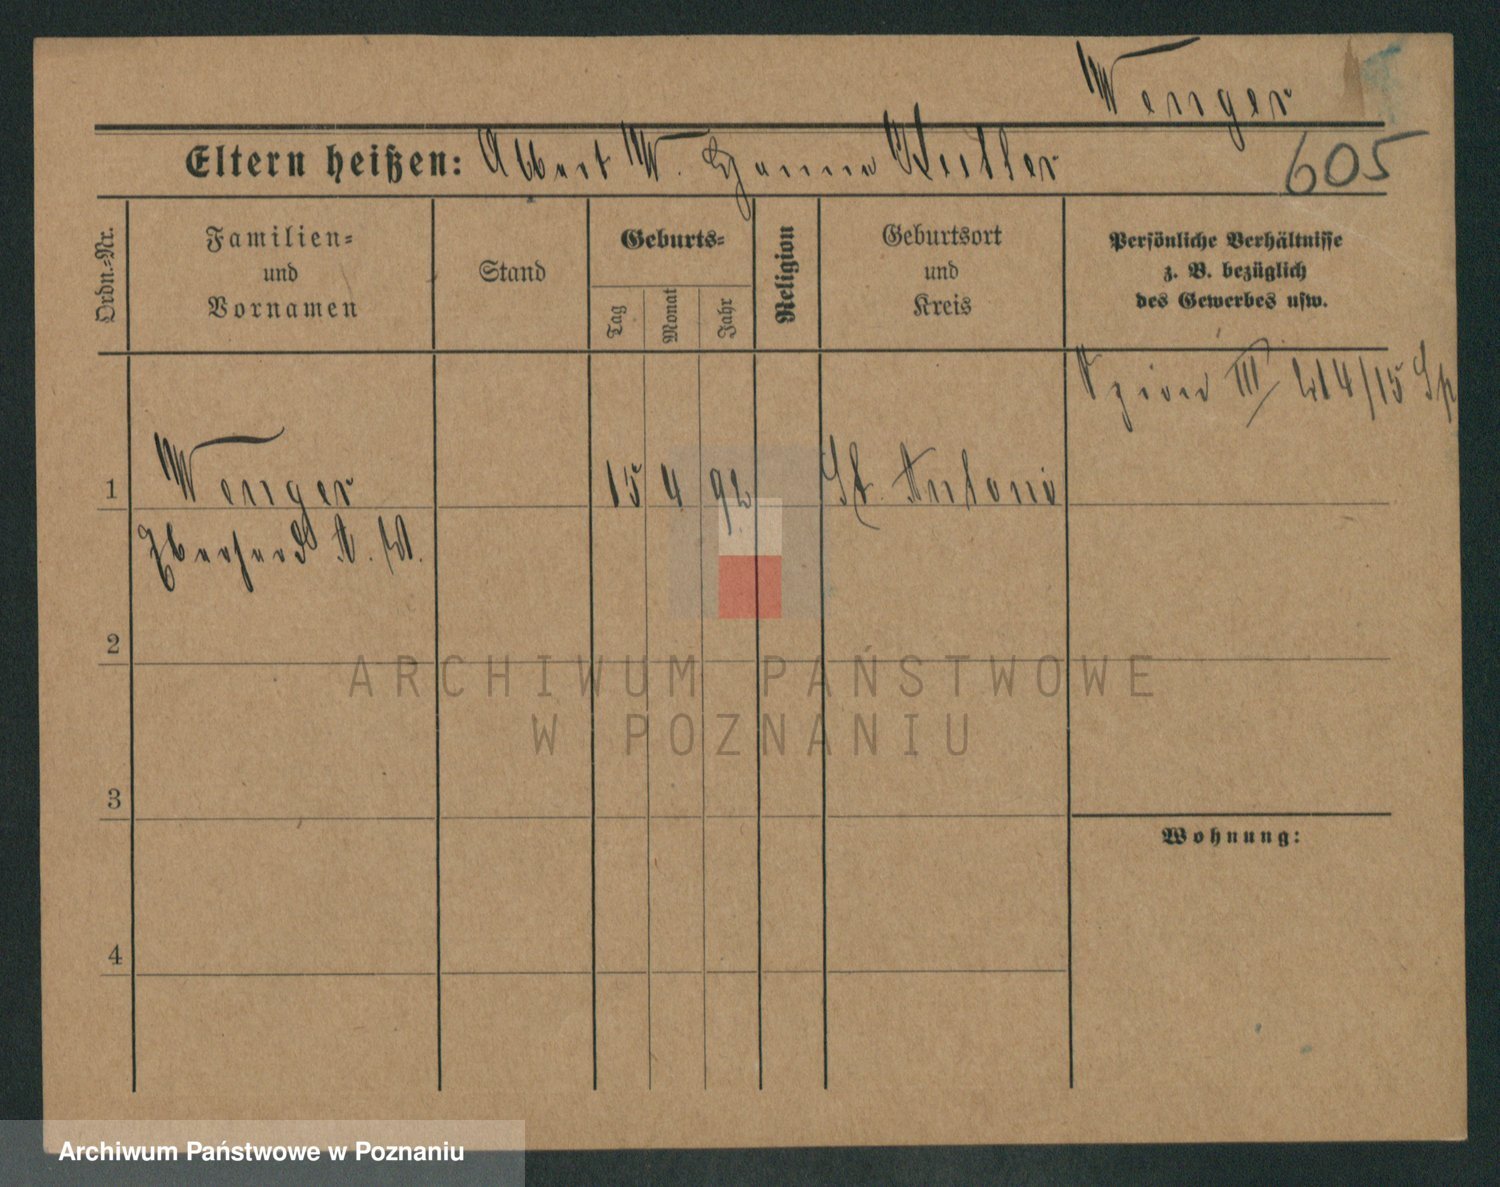 Wenger
Eltern heißen: Albert W. Hanna
605
Ordn.-Nr.
Familien-
und
Vornamen
Stand
Geburts-
Tag
Monat
Jahr
Religion
Geburtsort
und
Kreis
Persönliche Verhältnisse
z. B. bezüglich
des Gewerbes usw.
III 14/15
1 Wenger 15 4 92 St. Antoni
Eberhard A. W.
2
ARCHIWUM PAŃSTWOWE
W POZNANIU
3
Wohnung:
4
Archiwum Państwowe w Poznaniu